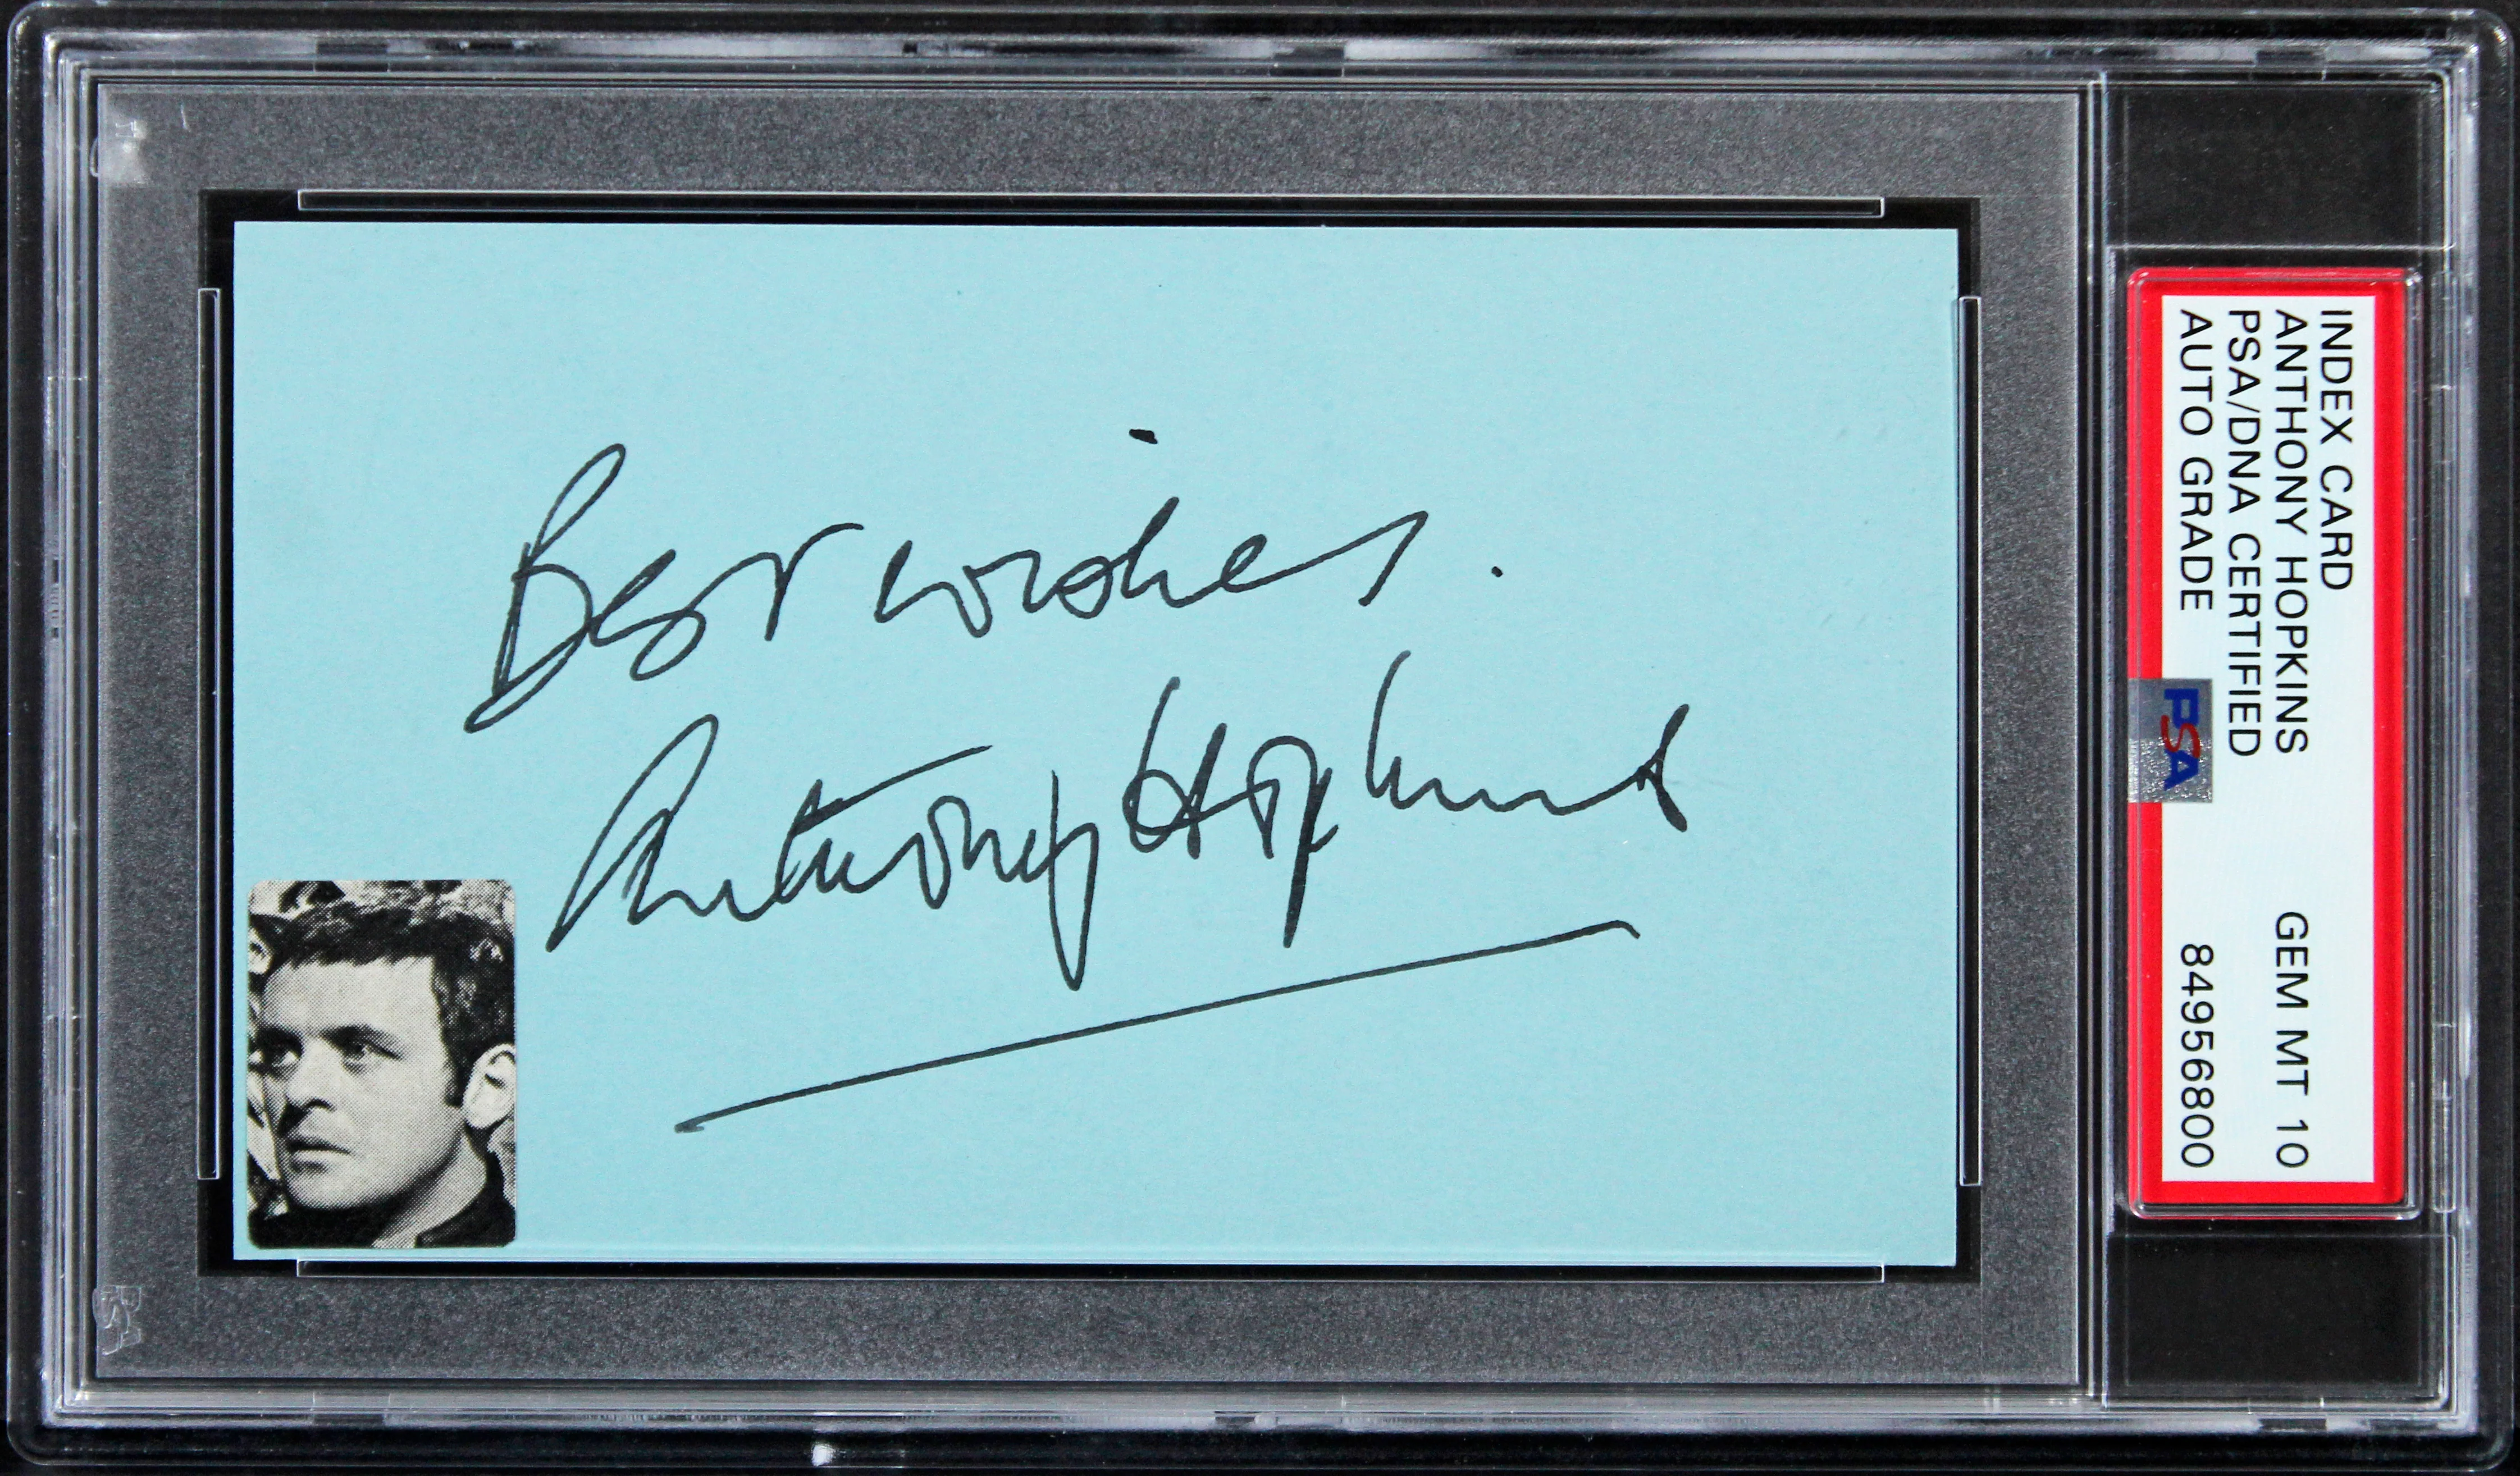 Best wishes.
Anthony Hopkins
INDEX CARD
ANTHONY HOPKINS GEM MT 10
PSA/DNA CERTIFIED
AUTO GRADE 84956800
PSA